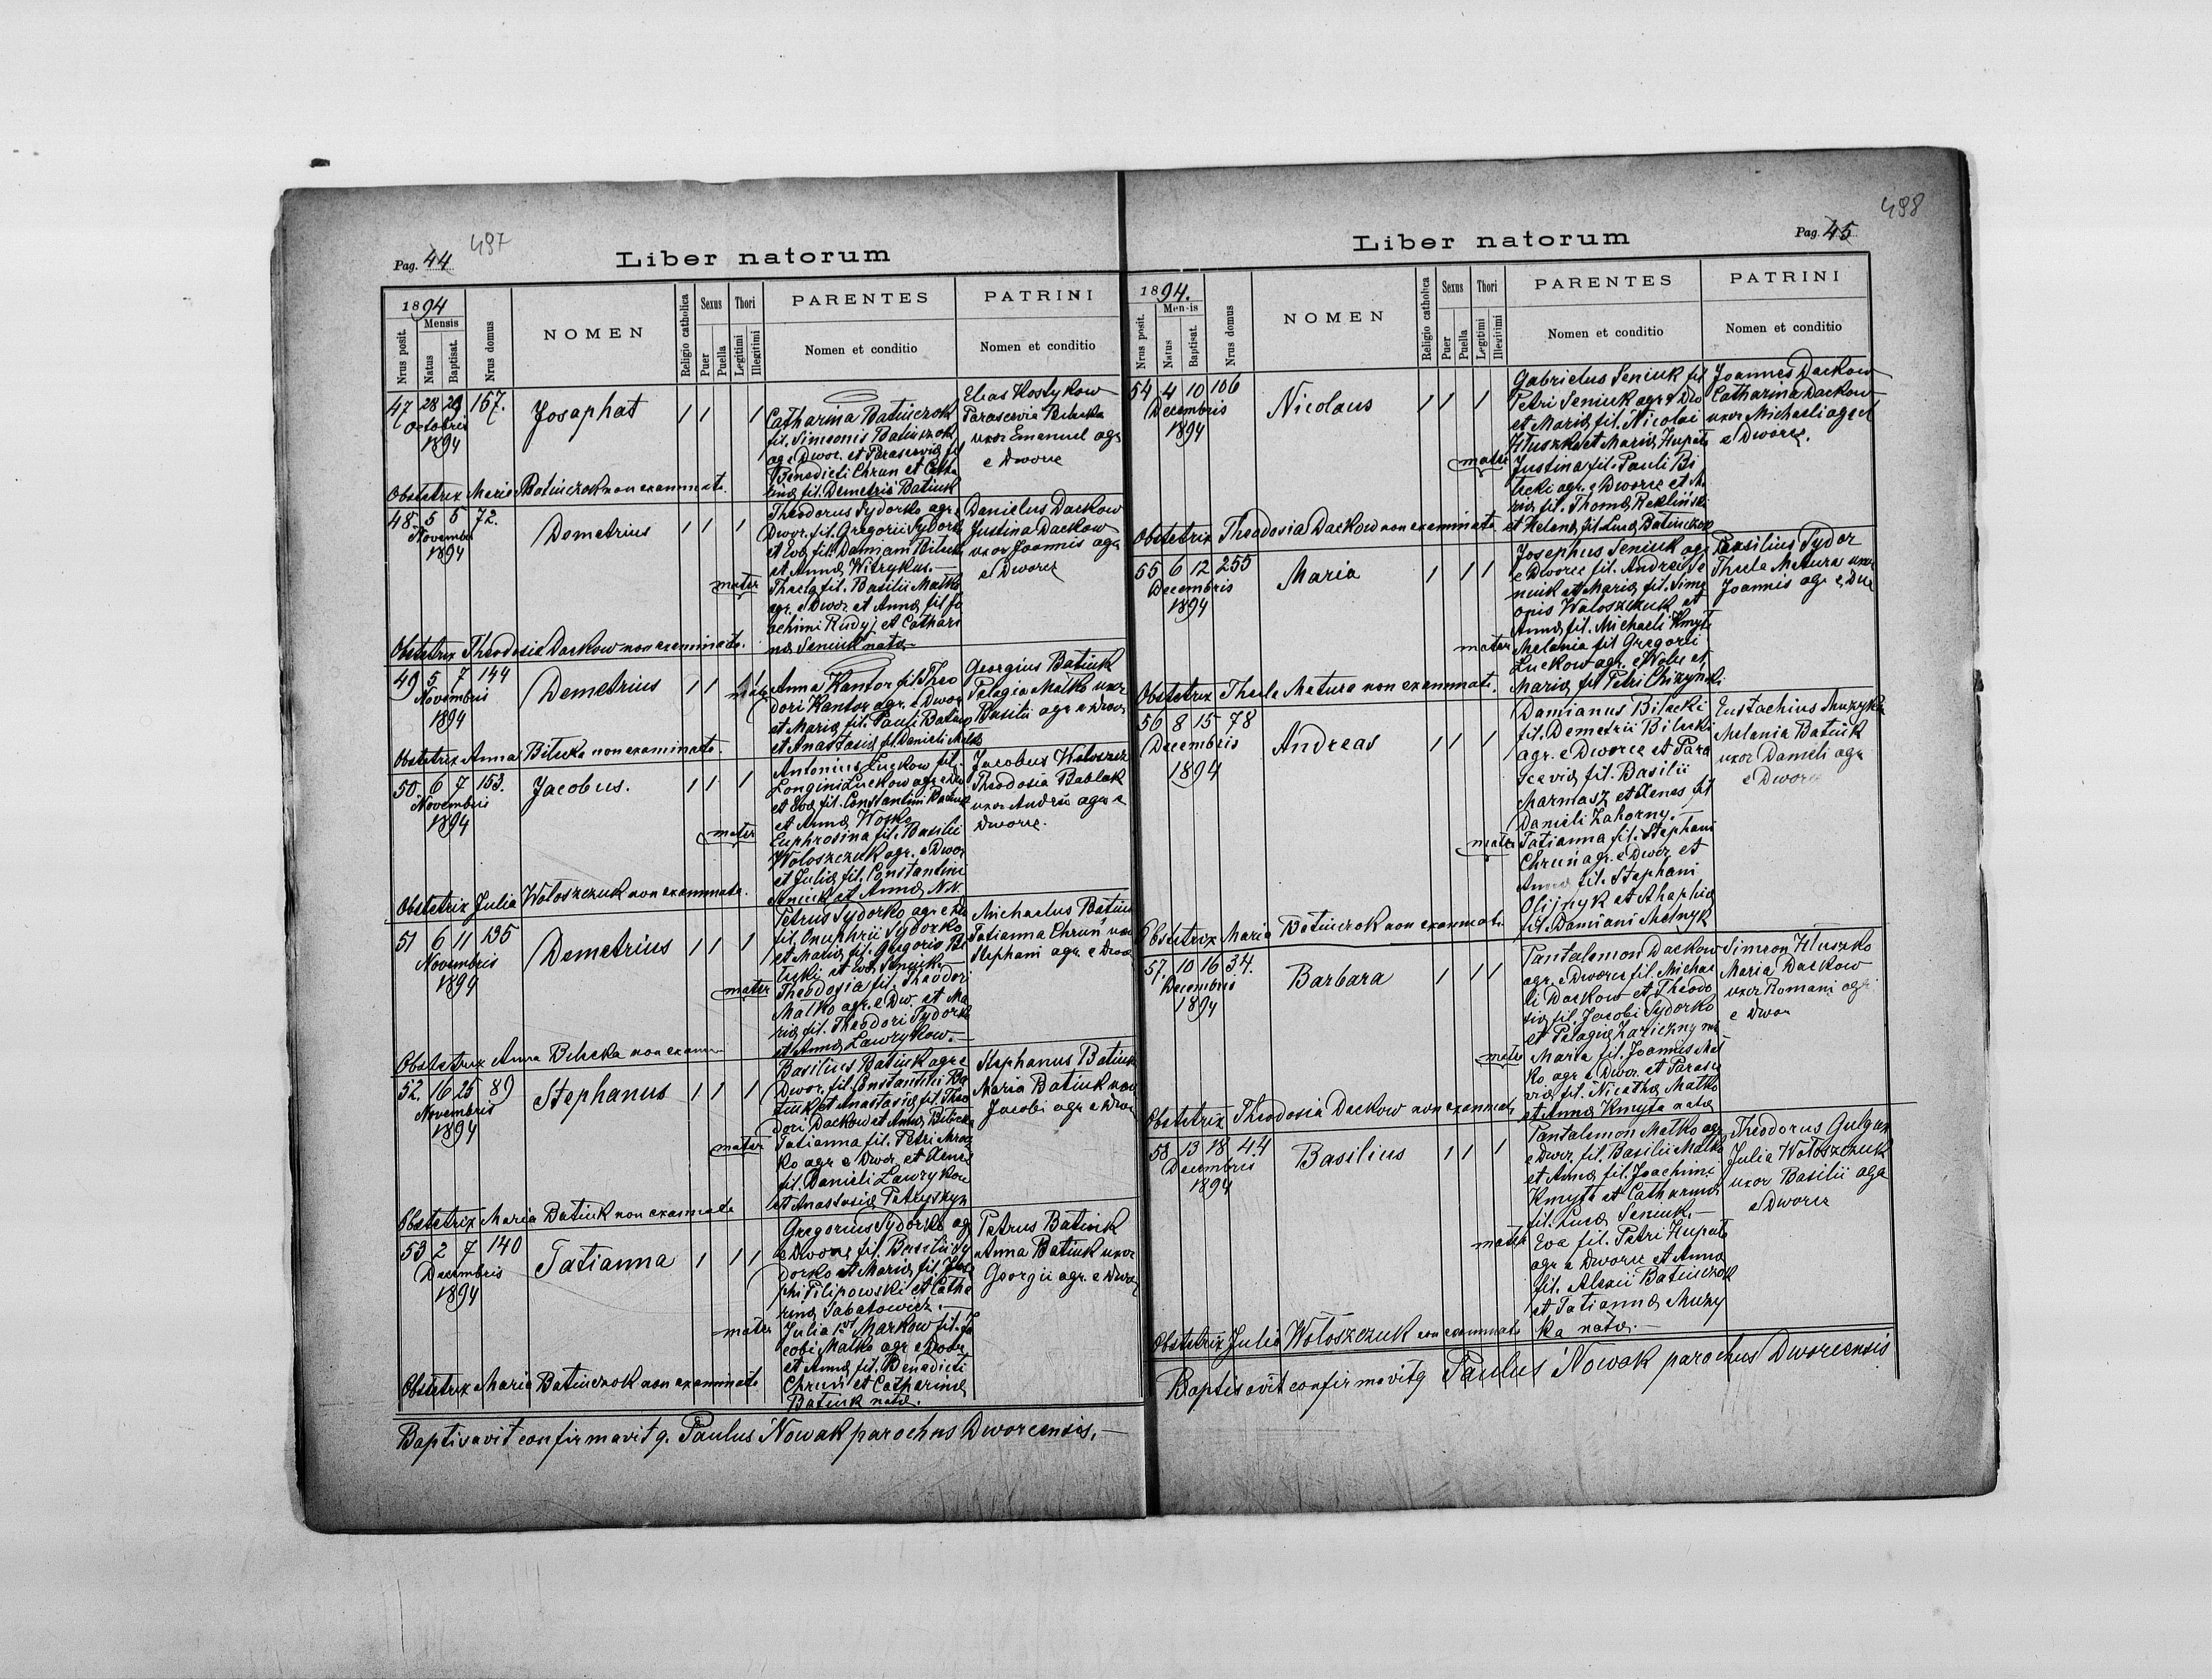 Pag. 44
497
Liber natorum
1894
Mensis
Nrus posit.
Natus
Baptisat.
Nrus domus
NOMEN
Religio catholica
Sexus
Puer
Puella
Thori
Legitimi
Illegitimi
PARENTES
Nomen et conditio
PATRINI
Nomen et conditio
47 28 29 167.
Octobris
1894
Josaphat
1 1 1
Catharina Batiuczok
fil. Simeonis Batiuczok
agr. e Dwor. et Parascevia fil
Benedicti Chrun et Catha
rina fil. Demetrii Batiuk
Elias Kostykow
Parascevia Bilecka
uxor Emanuel agr
e Dworce
Obstetrix Maria Batiuczok non examinata.
48. 5 5 72.
Novembr
1894
Demetrius
1 1 1
Theodorus Sydorko agr. e
Dwor. fil. Gregorii Sydork
et Eva fil. Damiani Biluck
et Anna Witrykus.—
mater Thecla fil. Basilii Matko
agr. e Dwor et Anna fil Jo
achimi Rudyj et Cathari
na Seniuk nata
Danielus Dackow
Justina Dackow
uxor Joannis agr
e Dworce
Obstetrix Theodosia Dackow non examinata.
49 5 7 144
Novembris
1894
Demetrius
1 1 1
mater Anna Kantor fil. Theo
dori Kantor agr. e Dwor
et Maria fil. Pauli Batiuk
et Anastasia fil. Danieli Matko
Georgius Batiuk
Pelagia Matko uxor
Basilii agr e Dwor
Obstetrix Anna Bilecka non examinata.
50. 6 7 153.
Novembris
1894
Jacobus.
1 1 1
Antonius Luckow fil.
Longini Luckow agr. e Dw
et Eva fil. Constantini Batiuk
et Anna Wojko
mater Euphrosina fil. Basilii
Wołoszczuk agr. e Dwor
et Julia fil. Constantini
Seniuk et Anna N.N.
Jacobus Wołoszcz
Theodosia Bablak
uxor Andrii agr e
Dworce.
Obstetrix Julia Wołoszczuk non examinata.
51 6 11 135
Novembris
1894
Demetrius
1 1 1
Petrus Sydorko agr e Dw
fil. Onuphrii Sydorko
et Maria fil. Gregorii Bi
lecki et Eva Seniuk.—
mater Theodosia fil. Theodori
Matko agr. e Dw. et Ma
ria fil. Theodori Sydork
et Anna Lawrykow.—
Michaelus Batiuk
Tatianna Chruń uxor
Stephani agr. e Dwor
Obstetrix Anna Bilecka non exam
52. 16 25 89
Novembris
1894
Stephanus
1 1 1
Basilius Batiuk agr e
Dwor. fil. Constantini Ba
tiuk et Anastasia fil. Theo
dori Dackow et Anna Bilecka
mater Tatianna fil. Petri Mroc
ko agr e Dwor. et Xenia
fil. Danieli Lawrykow
et Anastasia Petryszyn
Stephanus Batiuk
Maria Batiuk uxor
Jacobi agr e Dwor
Obstetrix Maria Batiuk non examinata
53 2 7 140
Decembris
1894
Tatianna
1 1 1
Gregorius Sydorko ag
e Dworce fil. Basilii Sy
dorko et Maria fil. Jose
phi Filipowski et Catha
rina Sabatowicz.—
mater Julia Markow fil. Ja
cobi Matko agr e Dwor
et Anna fil. Benedicti
Chruń et Catharina
Batiuk nata.
Petrus Batiuk
Anna Batiuk uxor
Georgii agr. e Dwor
Obstetrix Maria Batiuczok non examinata
Baptisavit confirmavitq. Paulus Nowak parochus Dworcensis.—
Pag. 45
498
Liber natorum
1894.
Mensis
Nrus posit.
Natus
Baptisat.
Nrus domus
NOMEN
Religio catholica
Sexus
Puer
Puella
Thori
Legitimi
Illegitimi
PARENTES
Nomen et conditio
PATRINI
Nomen et conditio
54 4 10 106
Decembris
1894
Nicolaus
1 1 1
Gabrielus Seniuk fil
Petri Seniuk agr e Dwo
et Maria fil. Nicolai
Hłuszko et Maria Hupało
mater Justina fil. Pauli Bi
lecki agr. e Dworce et Ma
ria fil. Thoma Rekliński
et Helena fil. Luca Batiuczok
Joannes Dackow
Catharina Dackow
uxor Michaeli agr
e Dworce.
Obstetrix Theodosia Dackow non examinata
55 6 12 255
Decembris
1894
Maria
1 1 1
Josephus Seniuk agr
e Dworce fil. Andrei Se
niuk et Maria fil. Sime
onis Wołoszczuk et
Anna fil. Michaeli Kmyt
mater Melania fil Gregorii
Luckow agr. e Wolic et
Maria fil Petri Chiżyński
Basilius Sydor
Thecla Matura uxor
Joannis agr e Dw
Obstetrix Thecla Matura non examinata.
56 8 15 78
Decembris
1894
Andreas
1 1 1
Damianus Bilecki
fil. Demetrii Bilecki
agr. e Dworce et Para
scevia fil. Basilii
Marmasz et Xenia fil
Danieli Zahorny.—
mater Tatianna fil. Stephani
Chruń agr. e Dwor et
Anna fil. Stephani
Olijnyk et Ahaphia
fil. Damiani Melnyk
Eustachius Muzyka
Melania Batiuk
uxor Danieli agr
e Dworce
Obstetrix Maria Batiuczok non examinata
57. 10 16 34.
Decembris
1894
Barbara
1 1 1
Pantalemon Dackow
agr. e Dworce fil. Michae
li Dackow et Theodo
sia fil. Jacobi Sydorko
et Pelagia Zariczny
mater Maria fil. Joannis Mat
ko agr e Dwor. et Parasc
evia fil. Nicetha Matko
et Anna Kmyta nata
Simeon Hłuszko
Maria Dackow
uxor Romani agr
e Dwor
Obstetrix Theodosia Dackow non examinata
58 13 18 44
Decembris
1894
Basilius
1 1 1
Pantalemon Matko agr
e Dwor. fil. Basilii Matko
et Anna fil. Joachimi
Kmyta et Catharina
fil. Luca Seniuk.—
mater Eva fil. Petri Hupało
agr e Dworce et Anna
fil. Alexii Batiuczok
et Tatianna Muzy
ka nata.—
Theodorus Gulgan
Julia Wołoszczuk
uxor Basilii agr
e Dworce
Obstetrix Julia Wołoszczuk non examinata
Baptisavit confirmavitq Paulus Nowak parochus Dworcensis